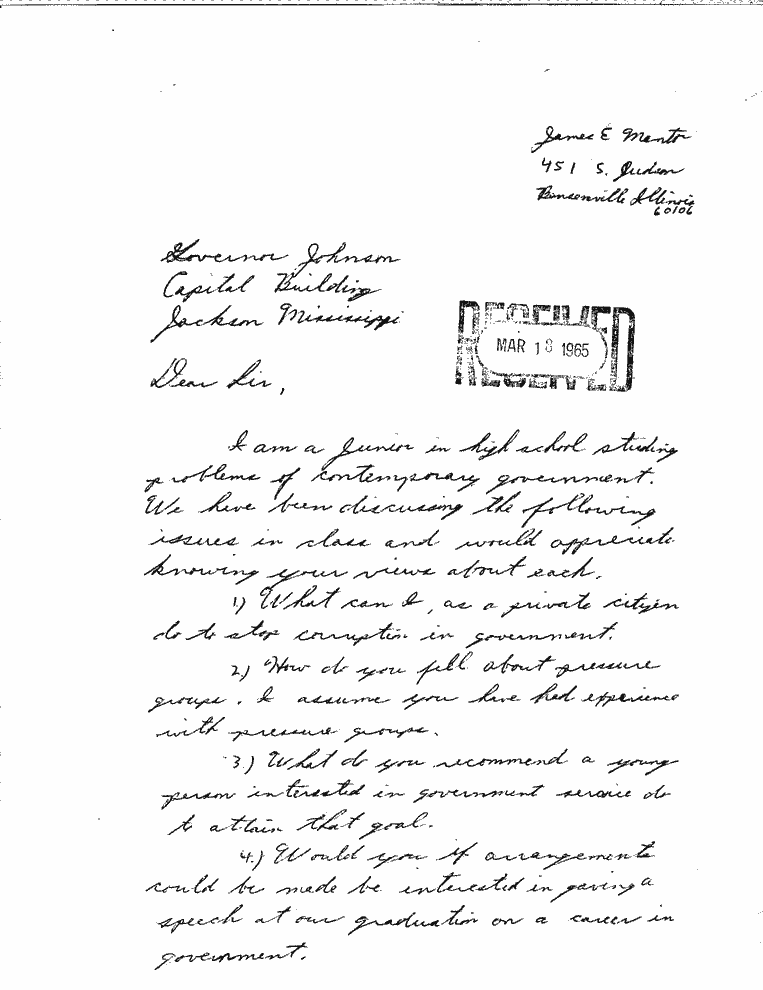 James E Manter
451 S. Judson
Bensenville Illinois
60106
Governor Johnson
Capital Building
Jackson Mississippi
RECEIVED
MAR 18 1965
RECEIVED
Dear Sir,
I am a Junior in high school studing
problems of contemporary government.
We have been discussing the following
issues in class and would appreciate
knowing your views about each.
1) What can I, as a private citizen
do to stop corruption in government.
2) How do you fell about pressure
groups. I assume you have had experience
with pressure groups.
3.) What do you recommend a young
person interested in government service do
to attain that goal.
4.) Would you if arrangements
could be made be interested in gaving a
speech at our graduation on a career in
government.